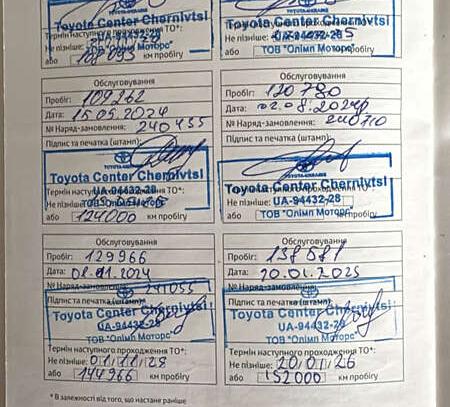 Toyota Center Chernivtsi
Термін наступного проходження ТО*:
UA-94432-28
Не пізніше:
ТОВ "Олімп Моторс"
або 108 095 км пробігу
Toyota Center Chernivtsi
UA-94432-28
Не пізніше:
ТОВ "Олімп Моторс"
або км пробігу
Обслуговування
Пробіг: 109262
Дата: 15.05.2024
№ Наряд-замовлення: 240435
Підпис та печатка (штамп):
TOYOTA-UKRAINE
Toyota Center Chernivtsi
Термін наступного проходження ТО*:
UA-94432-28
Не пізніше:
або 124000 км пробігу
Обслуговування
Пробіг: 120780
Дата: 02.08.2024
№ Наряд-замовлення: 240710
Підпис та печатка (штамп):
TOYOTA-UKRAINE
Toyota Center Chernivtsi
Термін наступного проходження ТО*:
UA-94432-28
Не пізніше:
ТОВ "Олімп Моторс"
або км пробігу
Обслуговування
Пробіг: 129966
Дата: 08.11.2024
№ Наряд-замовлення: 241055
Підпис та печатка (штамп):
Toyota Center Chernivtsi
UA-94432-28
ТОВ "Олімп Моторс"
Термін наступного проходження ТО*:
Не пізніше:
або 144966 км пробігу
Обслуговування
Пробіг: 138581
Дата: 20.01.2025
№ Наряд-замовлення:
Підпис та печатка (штамп):
Toyota Center Chernivtsi
UA-94432-28
ТОВ "Олімп Моторс"
Термін наступного проходження ТО*:
Не пізніше: 20/01/26
або 152000 км пробігу
* В залежності від того, що настане раніше